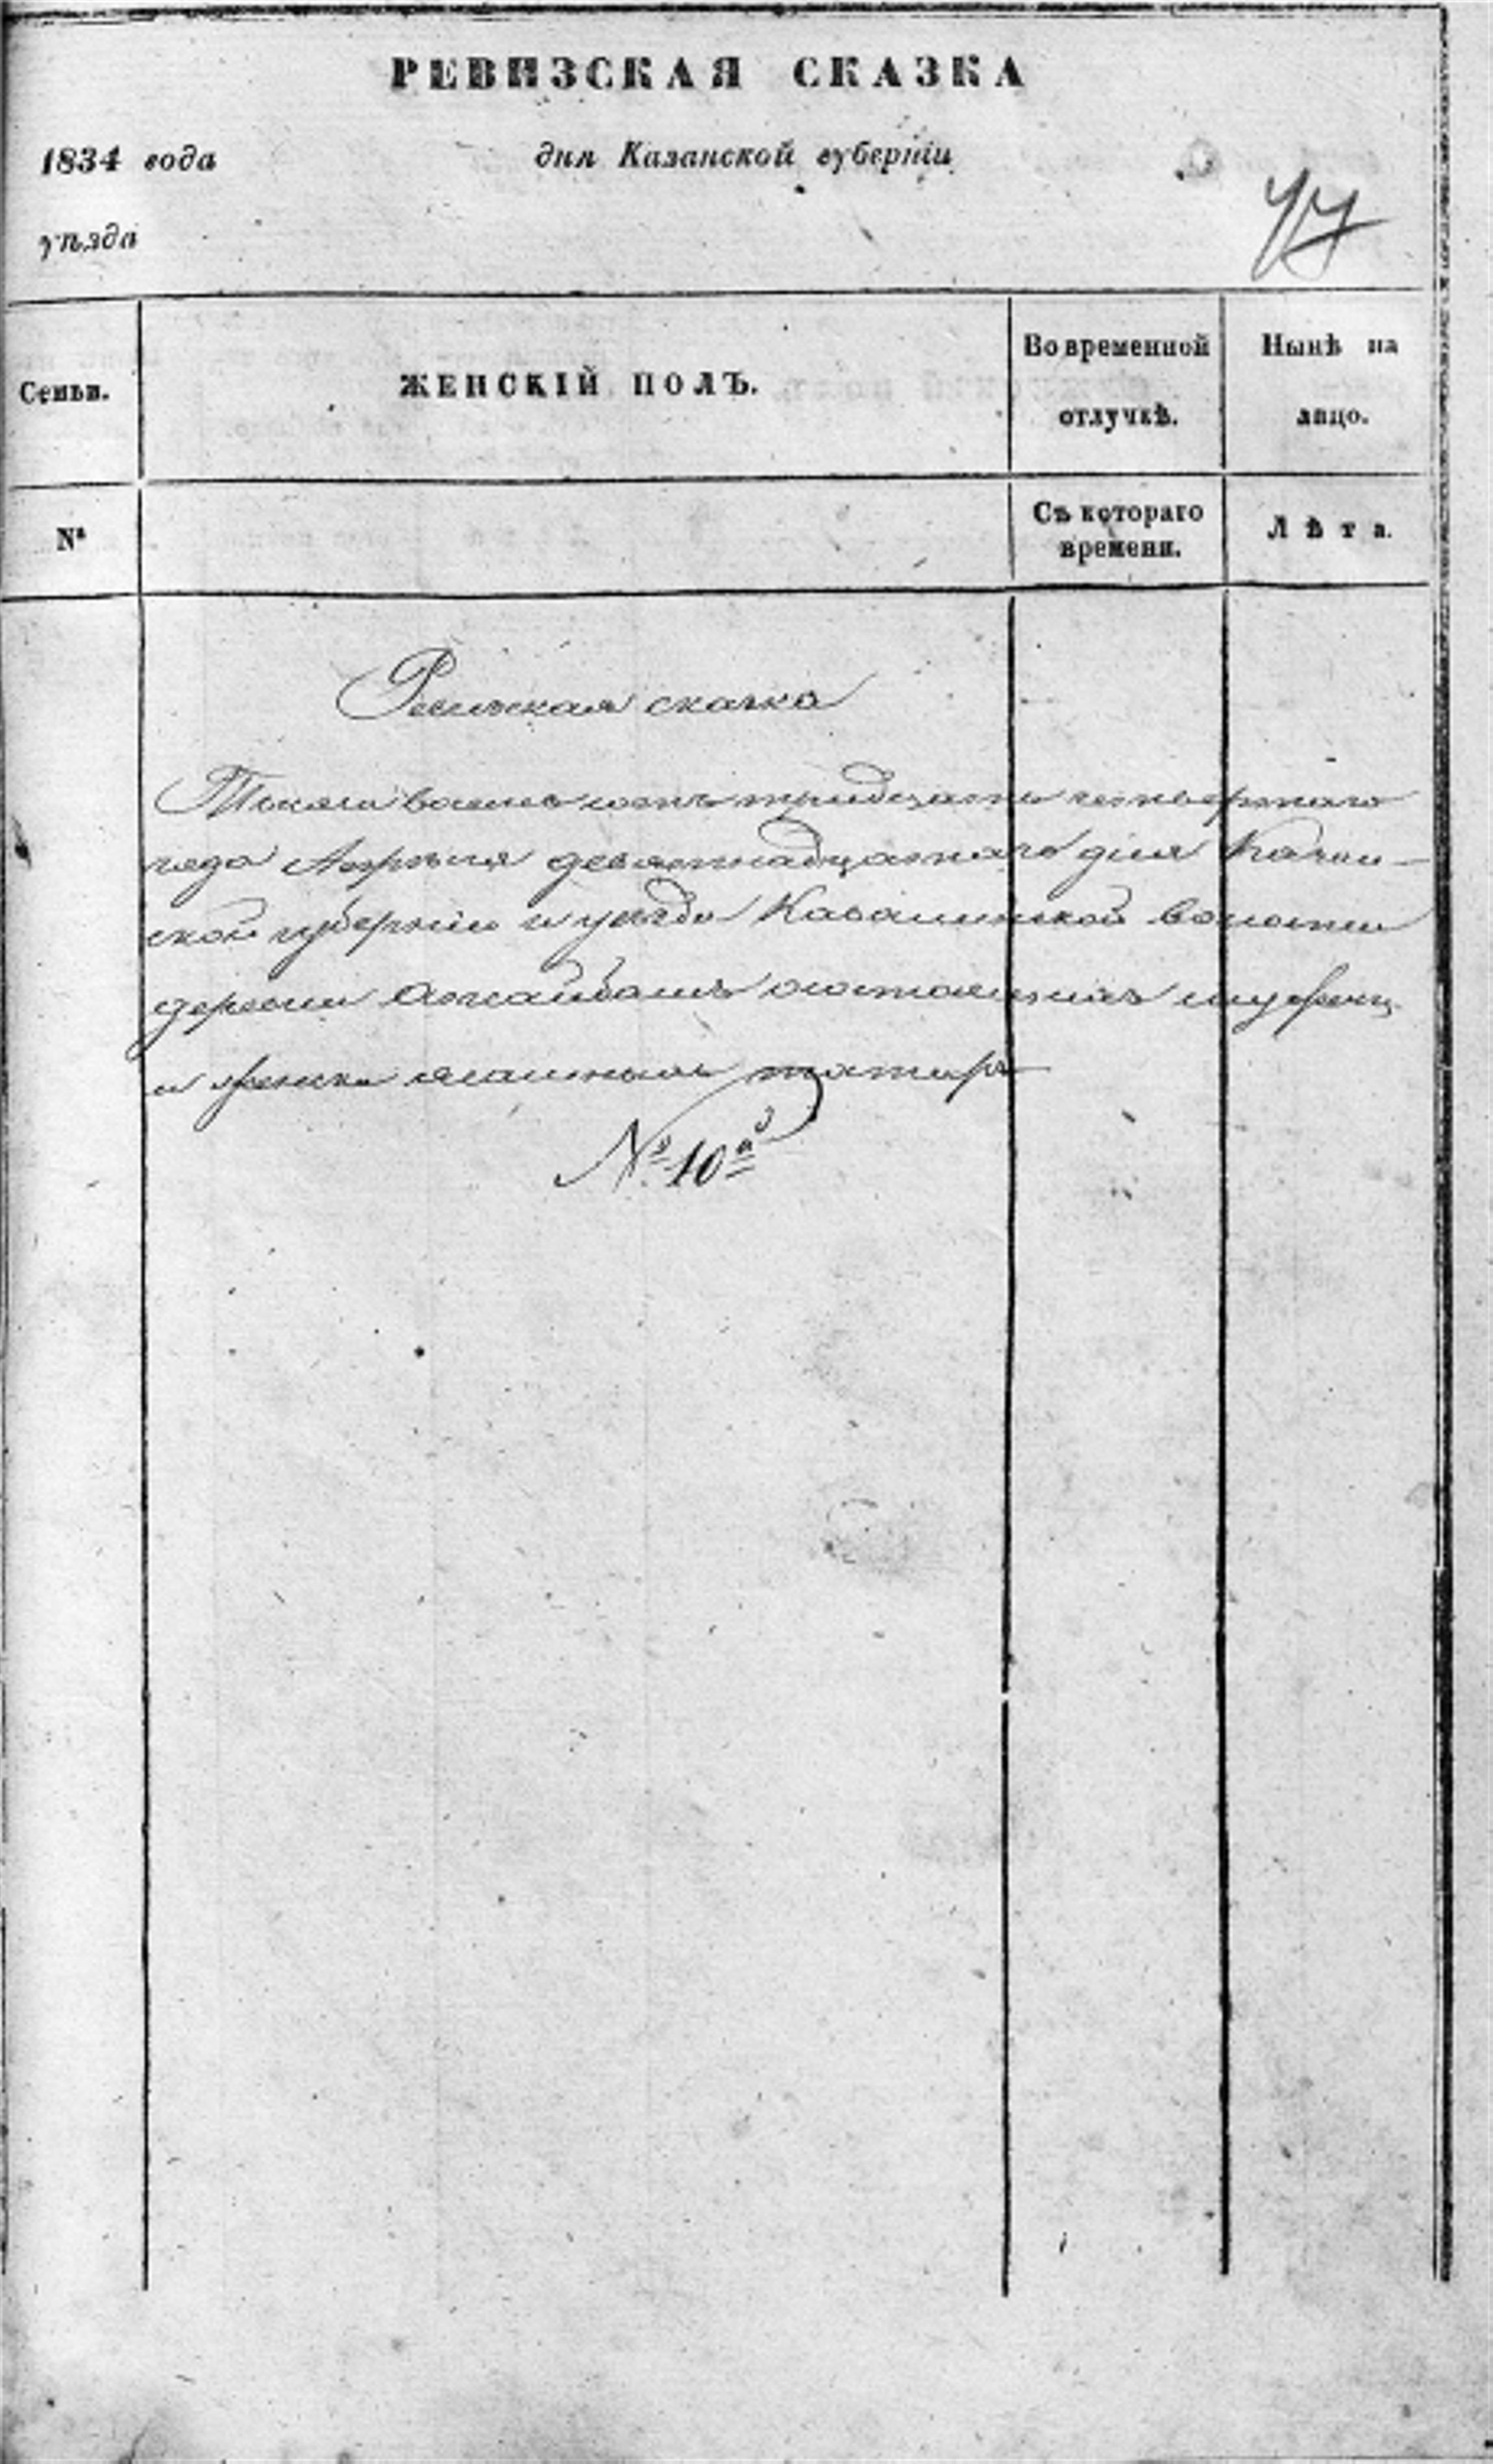 РЕВИЗСКАЯ СКАЗКА
1834 года дня Казанской губерніи
77
уѣзда
Семьи.
ЖЕНСКІЙ ПОЛЪ.
Во временной отлучкѣ.
Нынѣ на лицо.
№
Съ котораго времени.
Лѣта.
Ревизская сказка
Тысяча восемь сотъ тридцать четвертаго
года Апрѣля девятнадцатаго дня Казан-
ской губерніи и уѣзда волости
деревни о состоящихъ мужеск
и женска ясашныхъ татаръ
№ 10й